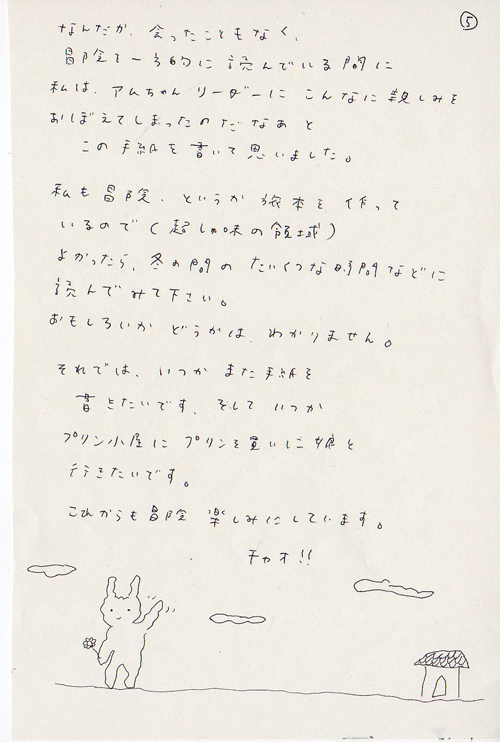 ⑤
なんだか、会ったこともなく、
冒険を一方的に読んでいる間に
私は、アムちゃんリーダーにこんなに親しみを
おぼえてしまったのだなあと
この手紙を書いて思いました。
私も冒険、というか旅本を、作って
いるので(超しゅ味の領域)
よかったら、冬の間のたいくつな時間などに
読んでみて下さい。
おもしろいかどうかは、わかりません。
それでは、いつかまた手紙を
書きたいです、そしていつか
プリン小屋にプリンを買いに娘と
行きたいです。
これからも冒険楽しみにしています。
チャオ!!